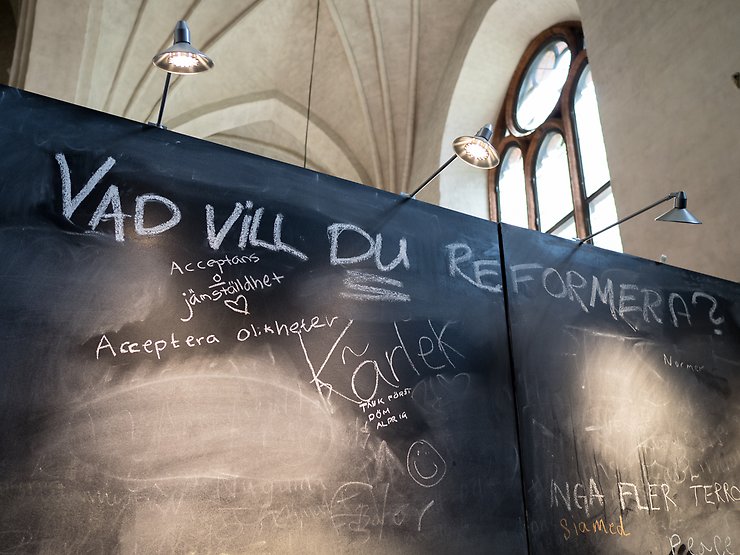 VAD VILL DU REFORMERA?
Acceptans
o
jämställdhet
Acceptera olikheter
Kärlek
TÄNK FÖRST
DÖM
ALDRIG
Normer
INGA FLER TERRO
Slamed
Peace